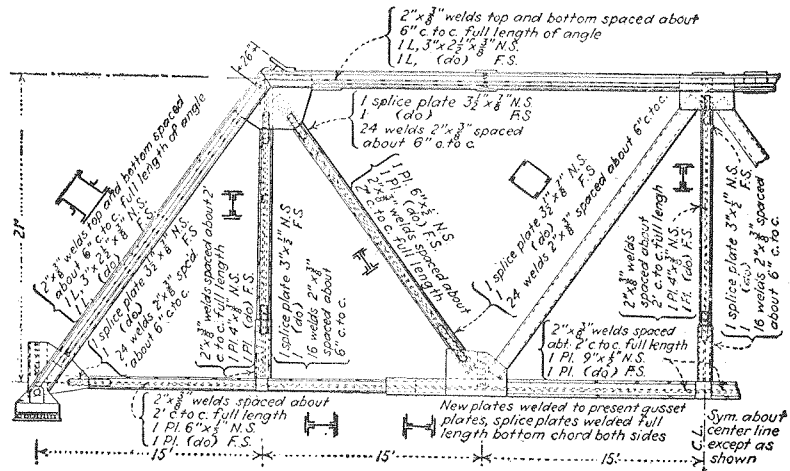 2"x3/8" welds top and bottom spaced about
6" c. to c. full length of angle
1 L, 3"x2 1/2"x3/8" N.S.
1 L, (do) F.S.
26"±
1 splice plate 3 1/2"x7/8" N.S.
1 (do) F.S.
24 welds 2"x3/8" spaced
about 6" c. to c.
2"x3/8" welds top and bottom spaced
about 6" c. to c., full length of angle
1 L, 3"x2 1/2"x3/8" N.S.
1 L, (do) F.S.
1 splice plate 3 1/2"x7/8" N.S.
1 (do) F.S.
24 welds 2"x3/8" spcd.
about 6" c. to c.
21'
2"x3/8" welds spaced about 2'
c. to c. full length
1 Pl. 4"x3/8" N.S.
1 Pl. (do) F.S.
1 splice plate 3"x1/2" N.S.
1 (do) F.S.
16 welds 2"x3/8"
spaced about
6" c. to c.
1 Pl. 6"x1/2" N.S.
1 Pl. (do) F.S.
2"x3/8" welds spaced about
2' c. to c. full length
1 splice plate 3 1/2"x7/8" N.S.
1 (do) F.S.
24 welds 2"x3/8" spaced about 6" c. to c.
2"x3/8" welds
spaced about
2' c. to c. full lengh
1 Pl. 4"x3/8" N.S.
1 Pl. (do) F.S.
1 splice plate 3"x1/2" N.S.
1 (do) F.S.
16 welds 2"x3/8" spaced
about 6" c. to c.
2"x3/8" welds spaced
abt. 2' c to c. full length
1 Pl. 9"x1/2" N.S.
1 Pl. (do) F.S.
2"x3/8" welds spaced about
2' c. to c. full length
1 Pl. 6"x1/2" N.S.
1 Pl. (do) F.S.
New plates welded to present gusset
plates, splice plates welded full
length bottom chord both sides
C.L.
Sym. about
center line
except as
shown
15'
15'
15'